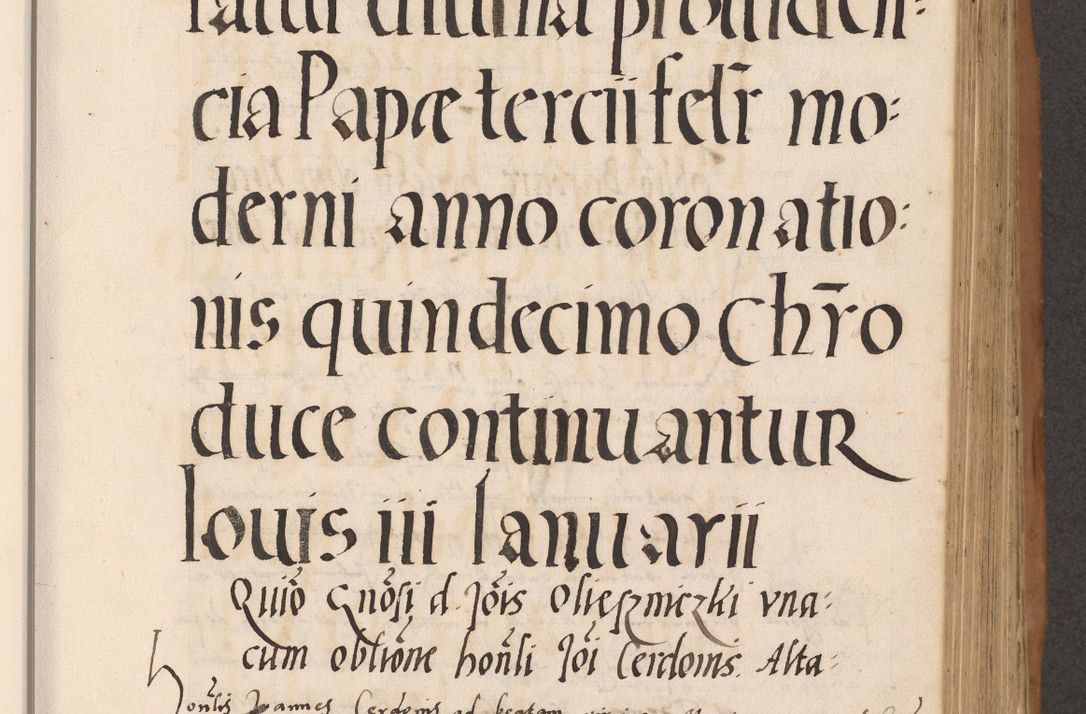 ratur diuina prouiden:
cia Papæ tercii felr̄ mo:
derni anno coronatio:
nis quindecimo Chr̄o
duce continuantur
Iouis iii Ianuarii
gnōsi d. Jōis Olieszniczki vna:
cum obliōne honīli Jōi Cerdonis. Alta:
Joannes Cerdonis ad beatam